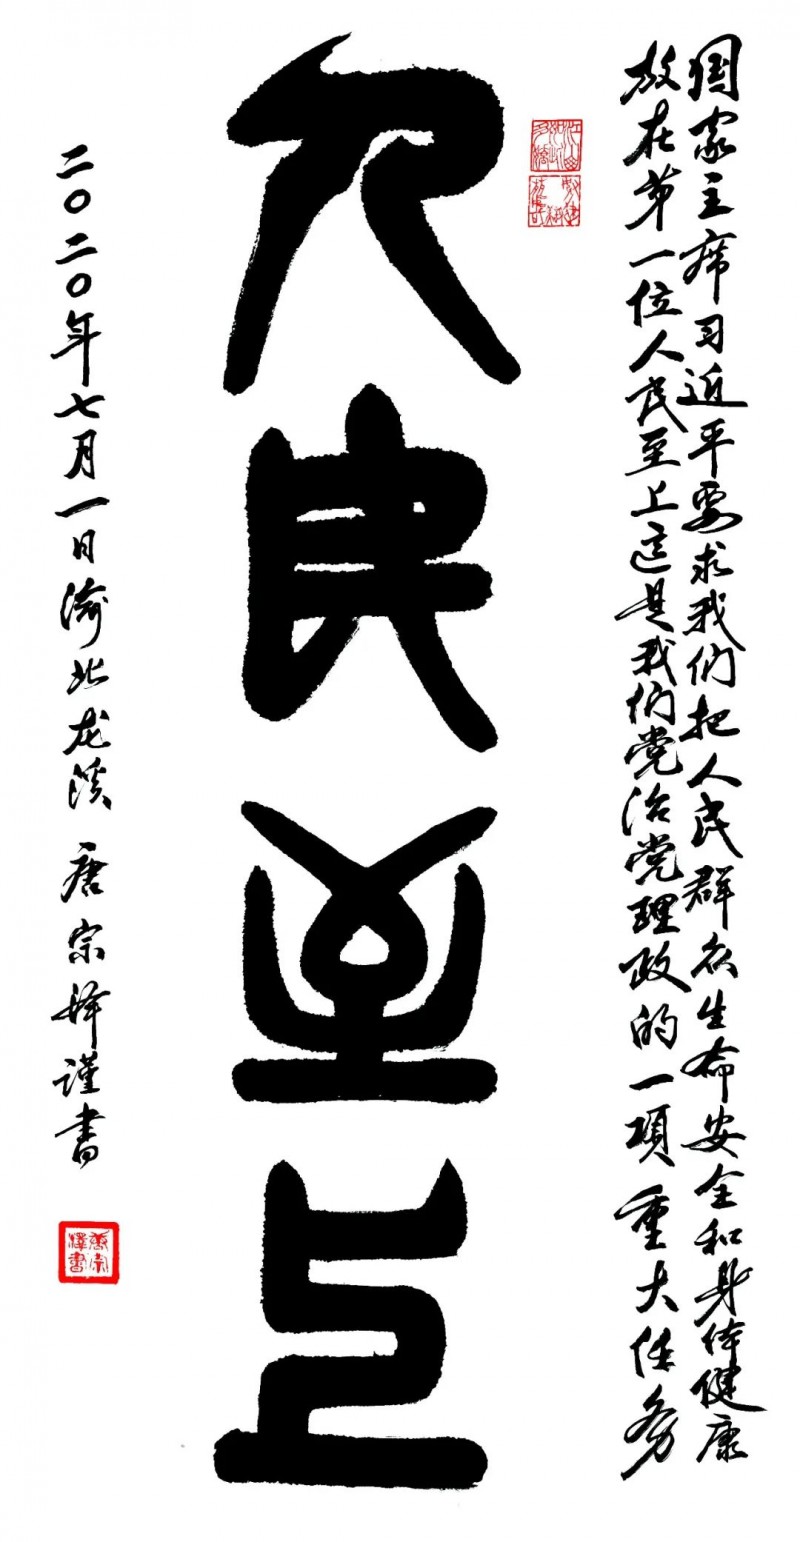 国家主席习近平要求我们把人民群众生命安全和身体健康
放在第一位人民至上这是我们党治党理政的一項重大任务
人民至上
二〇二〇年七月一日渝北龙溪 唐宗择谨書
唐宗擇書